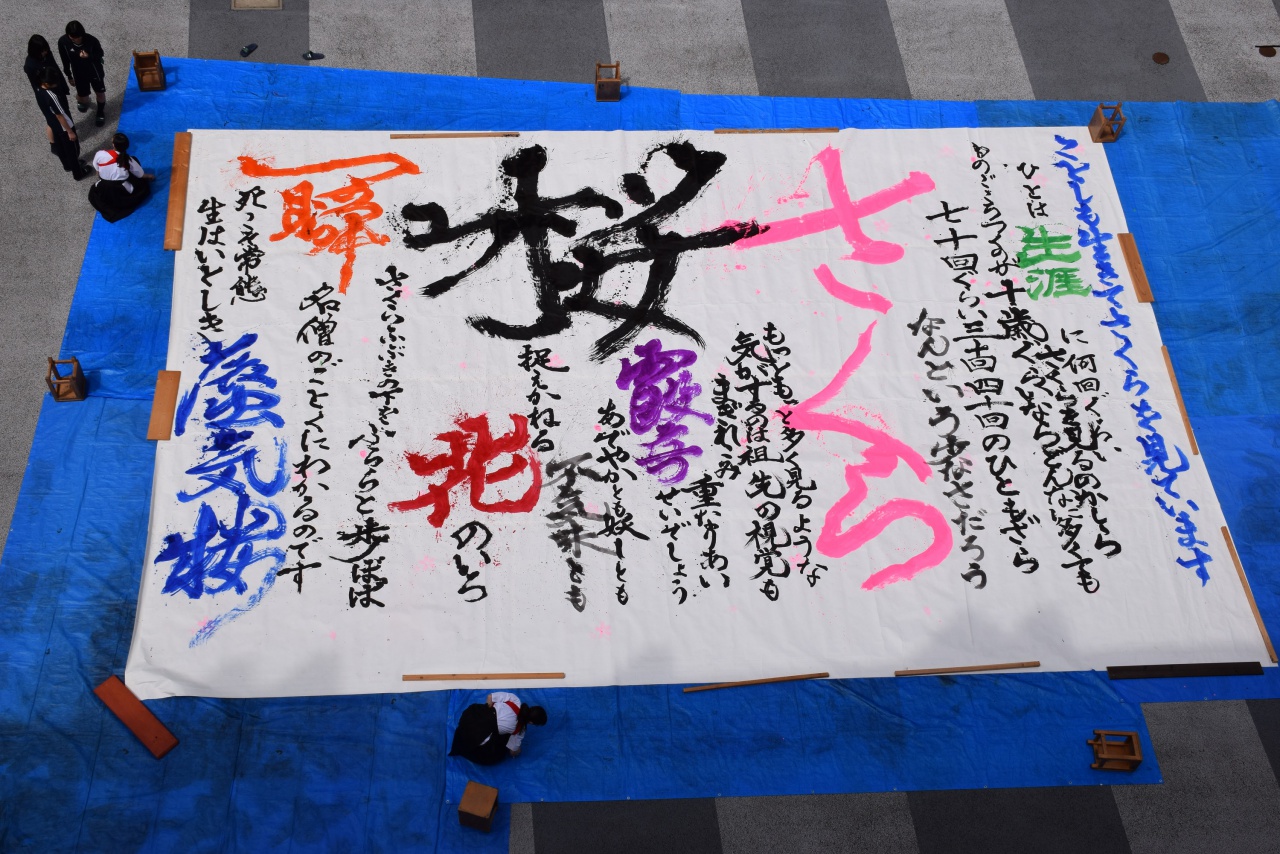 ことしも生きてさくらを見ています
ひとは生涯に何回ぐらい
さくらを見るのかしら
ものごころつくのが十歳ぐらいならどんなに多くても
七十回ぐらい三十回四十回のひともざら
なんという少なさだろう
さくら
もっともっと多く見るような
気がするのは祖先の視覚も
まぎれこみ重なりあい
霞せいでしょう
あでやかとも妖しとも
不気味とも
捉えかねる花のいろ
桜
さくらふぶきの下をふららと歩けば
一瞬
名僧のごとくにわかるのです
死こそ常態
生はいとしき蜃気楼